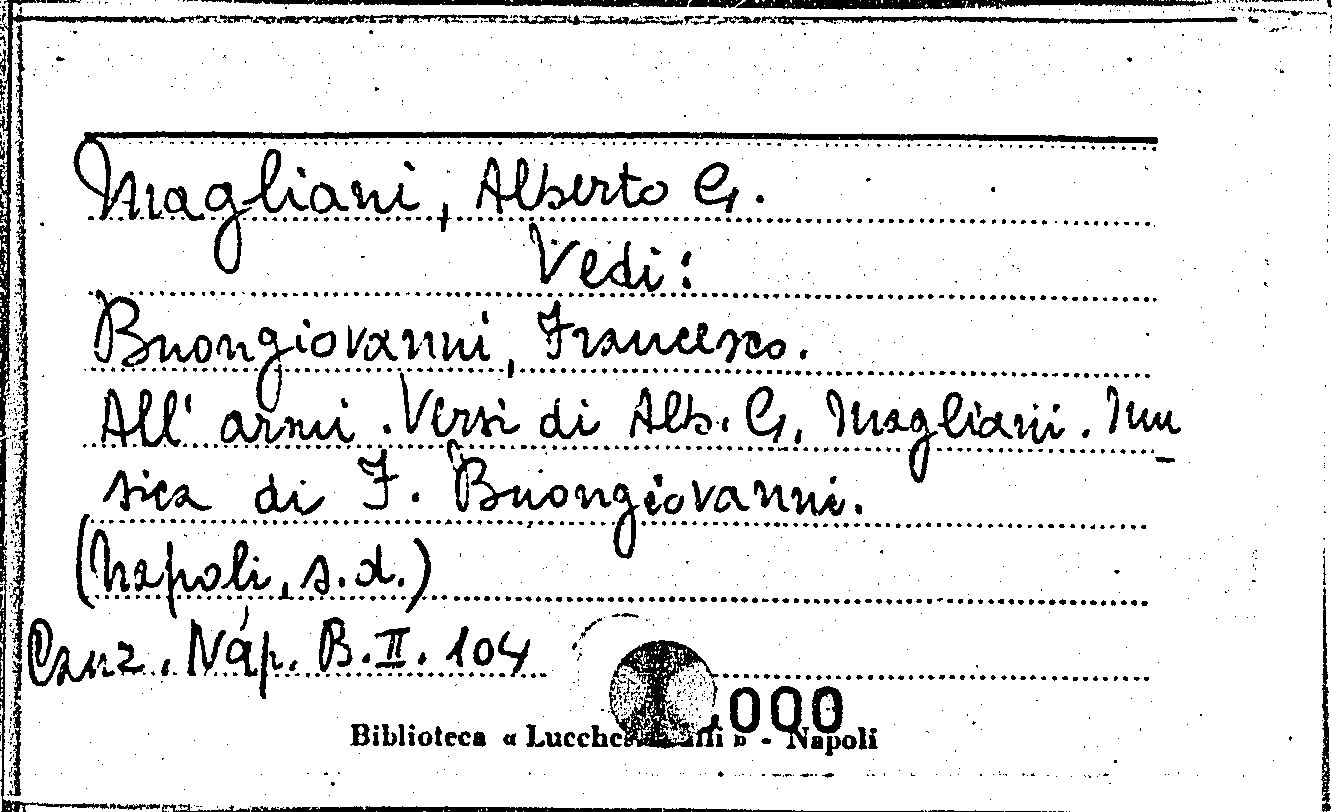 Magliani, Alberto G.
Vedi:
Buongiovanni, Francesco.
All' armi. Versi di Alb. G. Magliani. Mu
sica di F. Buongiovanni.
(Napoli, s.d.)
Canz. Nap. B.II. 104
.000
Biblioteca « » - Napoli